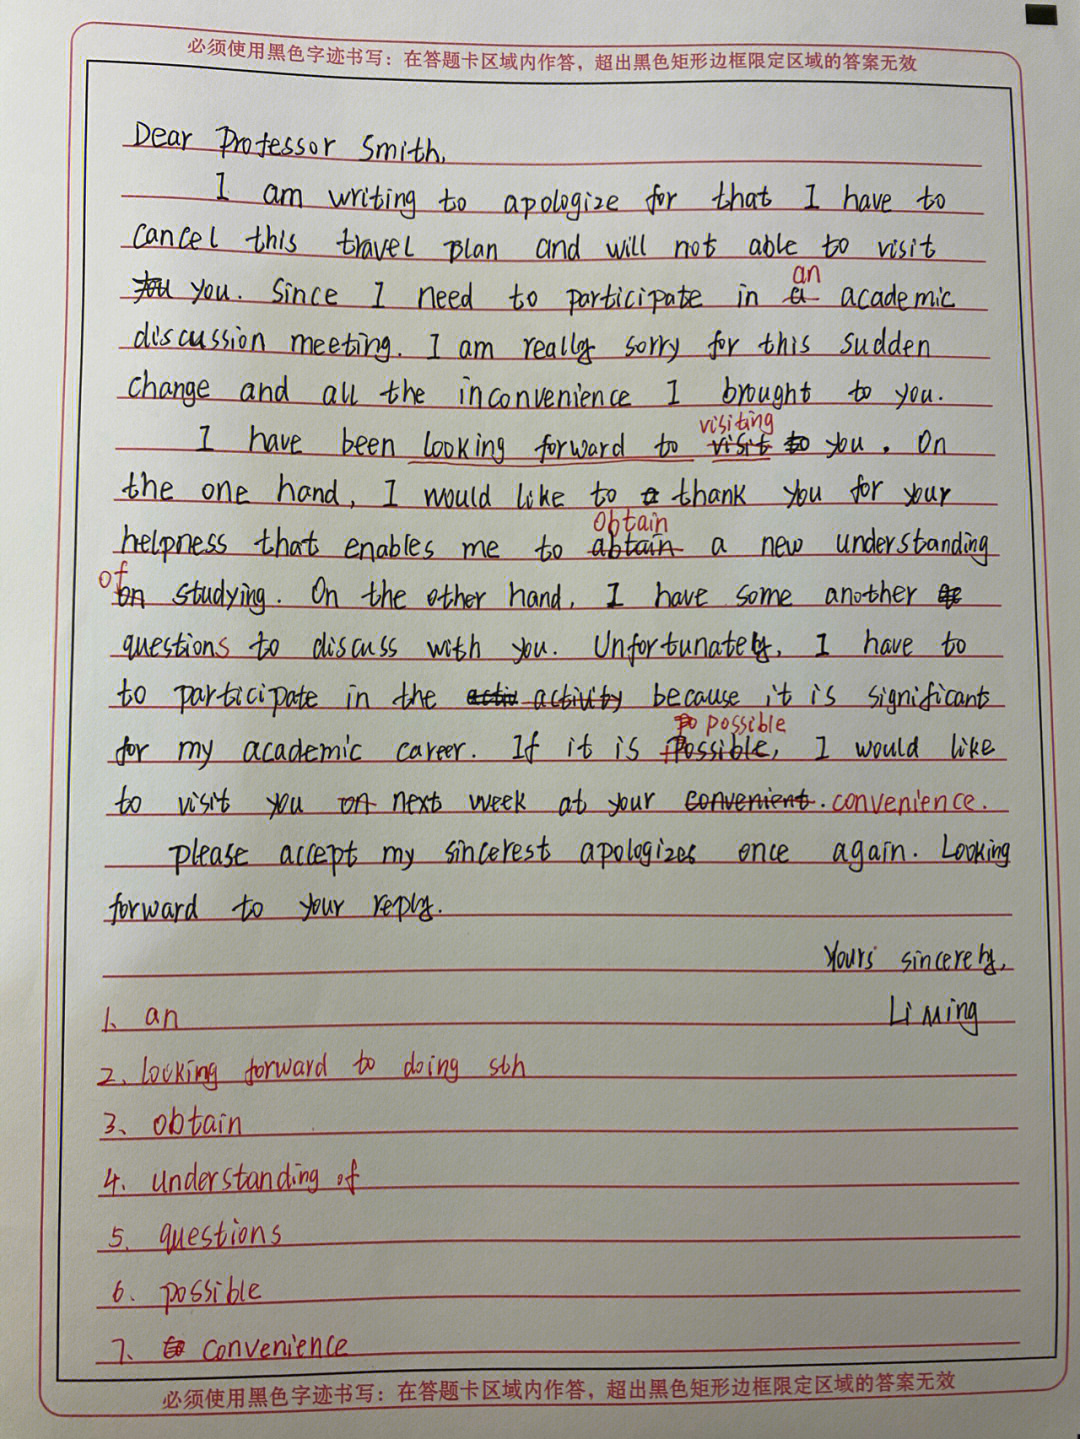 必须使用黑色字迹书写：在答题卡区域内作答，超出黑色矩形边框限定区域的答案无效
Dear Professor Smith,
I am writing to apologize for that I have to
cancel this travel plan and will not able to visit
an
you. Since I need to participate in a academic
discussion meeting. I am really sorry for this sudden
change and all the inconvenience I brought to you.
visiting
I have been looking forward to visit to you. On
the one hand, I would like to thank you for your
obtain
helpness that enables me to abtain a new understanding
of
on studying. On the other hand, I have some another
questions to discuss with you. Unfortunately, I have to
to participate in the activ activity because it is significant
possible
for my academic career. If it is possible, I would like
to visit you on next week at your convenient. convenience.
please accept my sincerest apologizes once again. Looking
forward to your reply.
Yours sincerely,
Li Ming
1. an
2. looking forward to doing sth
3、obtain
4. understanding of
5. questions
6. possible
7. convenience
必须使用黑色字迹书写：在答题卡区域内作答，超出黑色矩形边框限定区域的答案无效